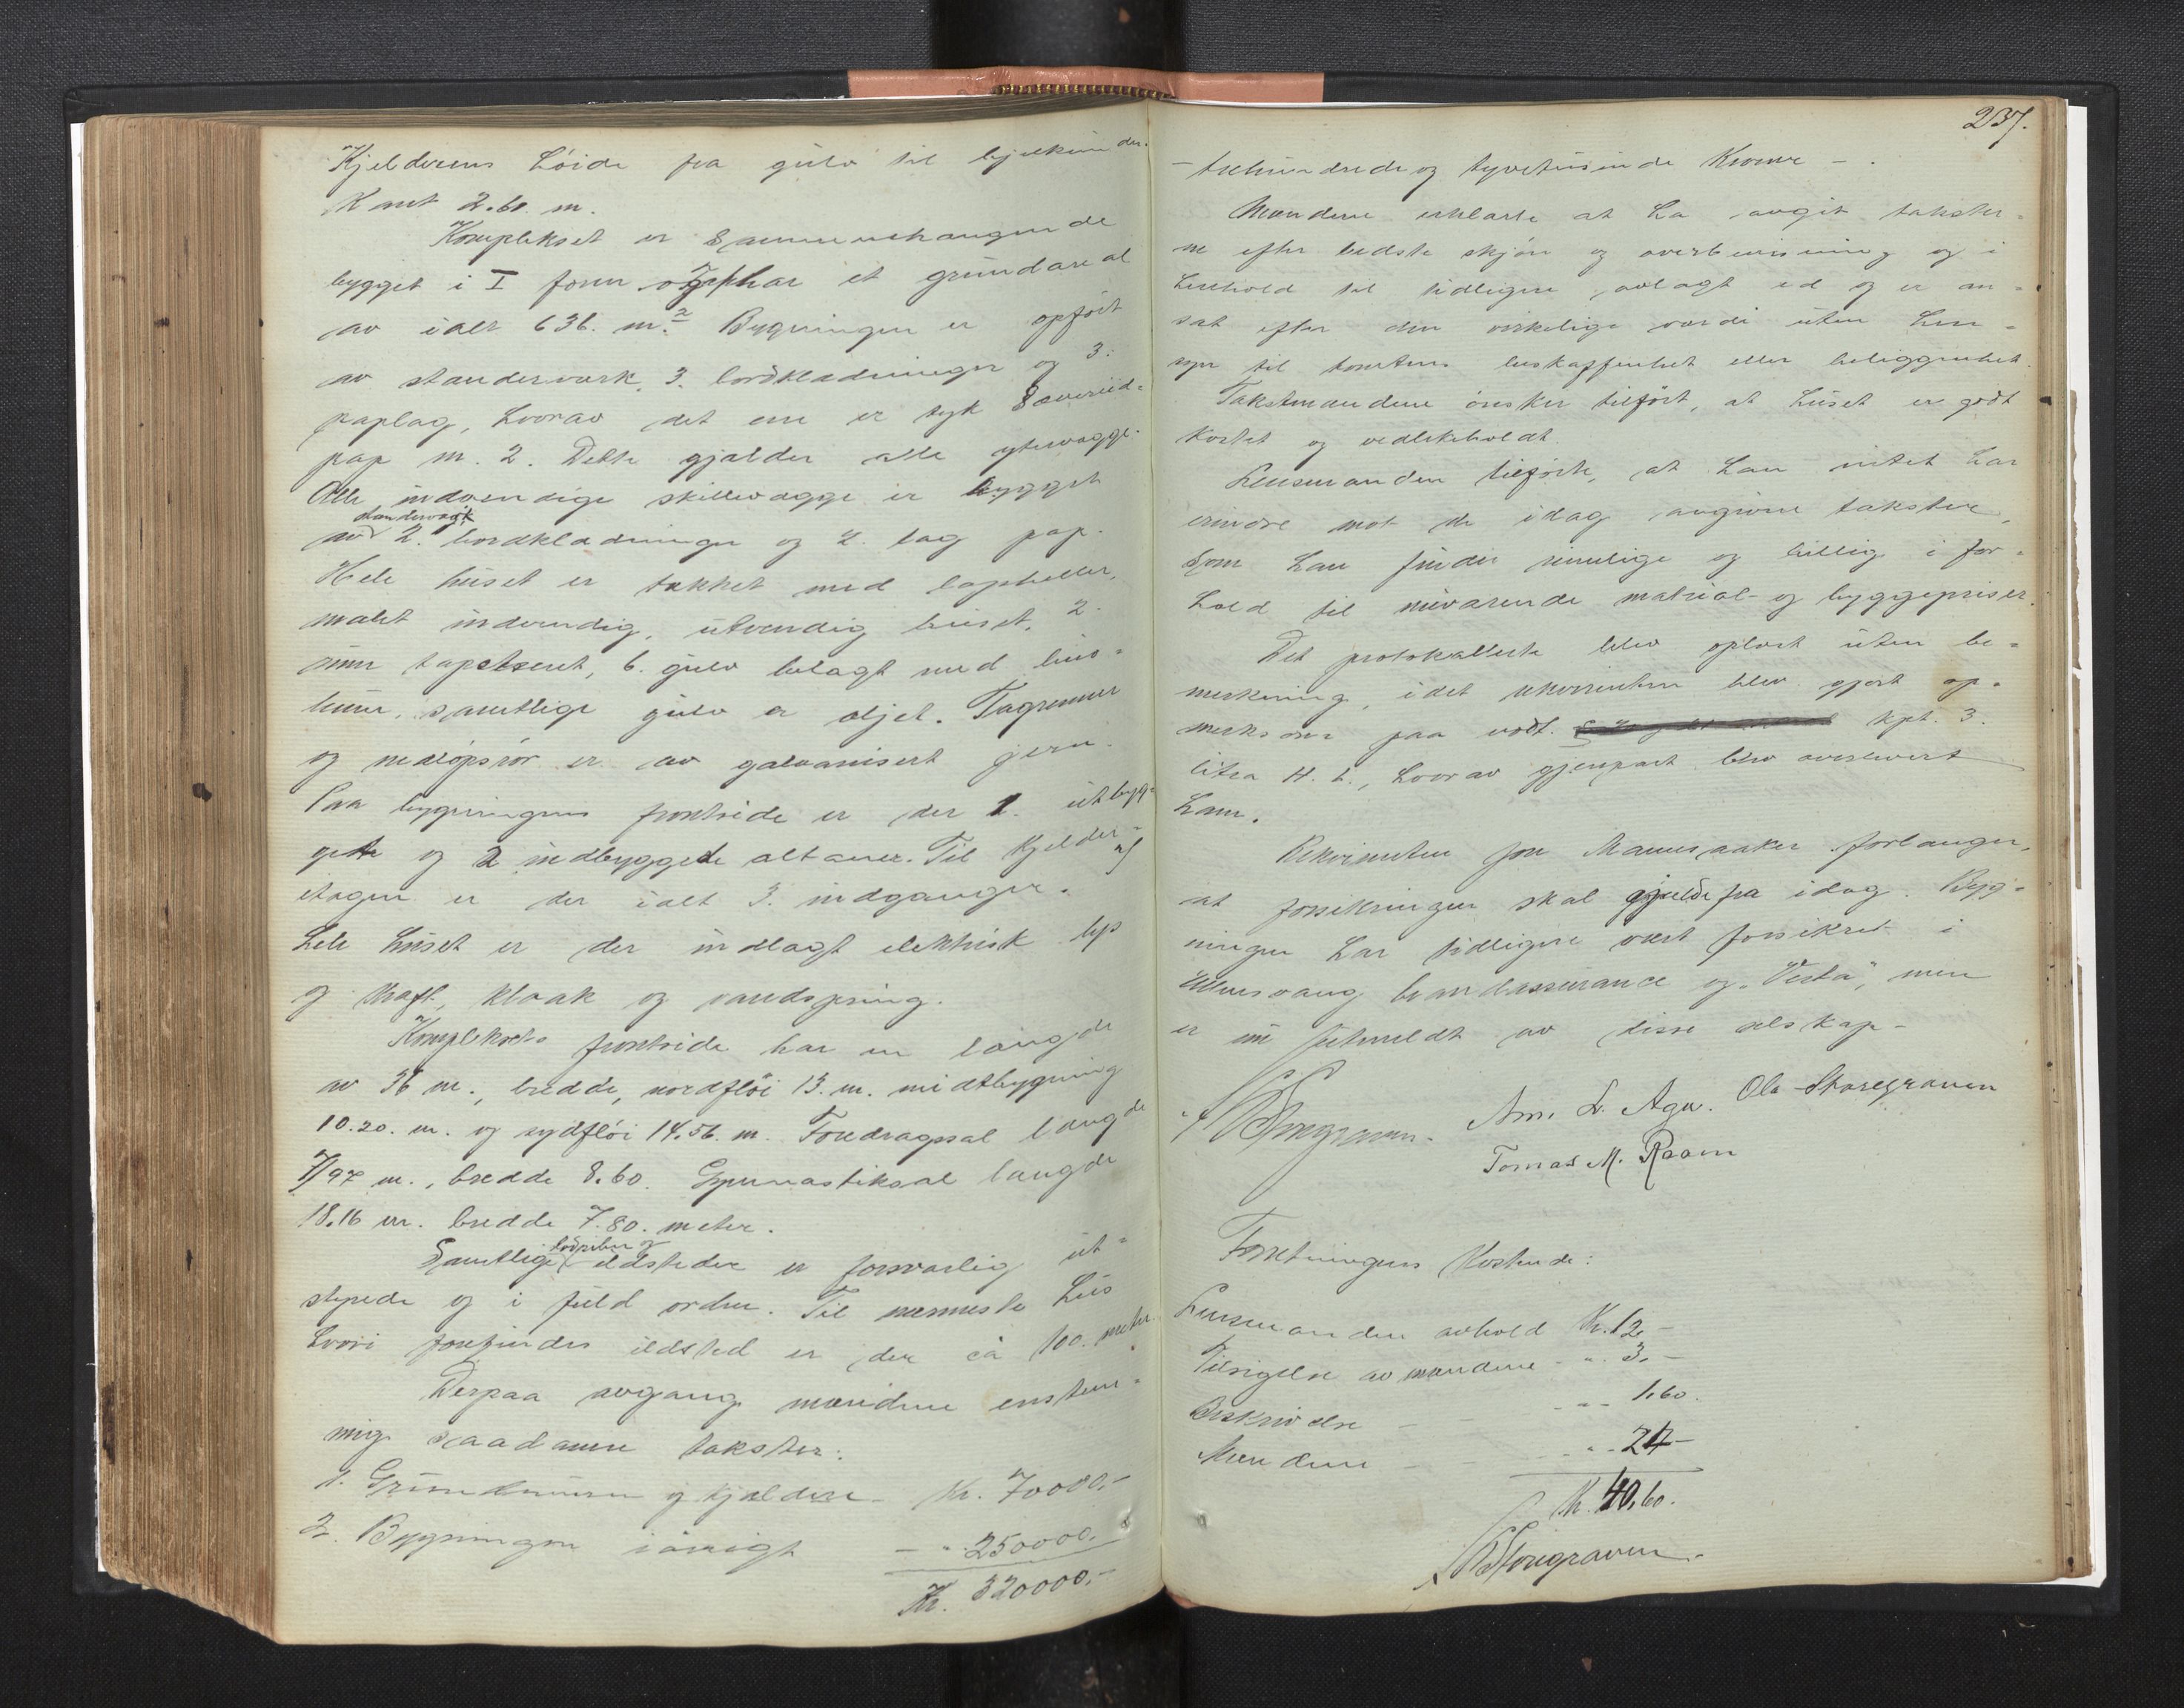 Kjelderens høide fra gulv til bjelkenes under
kant 2.60 m.
Komplekset er sammenhængende
bygget i I form og har et grundareal
av ialt 636. m.2 Bygningen er opført
av standerverk, 3. bordklædninger og 3.
paplag, hvorav det ene er tyk
pap m. 2. Dette gjælder alle ytervægge.
Alle indvendige skillevægge er bygget
av standerverk 2. bordklædninger og 2. lag pap.
Hele huset er tækket med lapheller,
malt indvendig, utvendig beiset, 2.
rum tapetsert, 6. gulv belagt med lino=
leum, samtlige gulv er oljet. Tagrenner
og nedløpsrør er av galvanisert jern.
Paa bygningens frontside er der 1. utbyg=
get og 2 indbyggede altaner. Til kjelder=
etagen er der ialt 3. indganger. I
hele huset er der indlagt elektrisk lys
og kraft, kloak og vandspring.
Kompleksets frontside har en længde
av 36 m., bredde, nordfløi 13. m. midtbygning
10.20. m. og sydfløi 14.56. m. Foredragssal længde
7,97 m., bredde 8.60. Gymnastiksal længde
18.16 m. bredde 7.80. meter.
Samtlige lodpiber og ildsteder er forsvarlig ut=
styrede og i fuld orden. Til nærmeste hus
hvori forefindes ildsted er der ca 100. meter.
Derpaa avgav mændene enstem=
mig saadanne takster:
1. Grundmuren og kjeldere - Kr. 70000,-
2. Bygningen iøvrigt - " 250000,-
Kr. 320000,-
237.
- trehundrede og tyvetusinde Kroner -.
Mændene erklærte at ha avgit takster=
ne efter bedste skjøn og overbevisning og i
henhold til tidligere avlagt ed og er an=
sat efter den virkelige værdi uten hen=
syn til tomtens beskaffenhet eller beliggenhet.
Takstmændene ønsker tilført, at huset er godt
kostet og vedlikeholdt.
Lensmanden tilførte, at han intet har
erindre mot de idag avgivne takster,
som han finder rimelige og billig i for=
hold til nuværende material- og byggepriser.
Det protokollerte blev oplæst uten be=
merkning, idet rekvirenten blev gjort op=
merksom paa vedt. kpt. 3.
litra H. 6., hvorav gjenpart blev overlevert
ham.
Rekvirenten Jon Mannsaaker forlanger,
at forsikringen skal gjælde fra idag. Byg=
ningen har tidligere vært forsikret i
Ullensvang brandassurance og "Vesta", men
er nu utmeldt av disse selskap -
Storegraven. Am. L. Aga. Ola Storegraven
Tomas M. Raaen
Forretningens kostende:
Lensmanden avhold Kr. 12,-
Tilsigelse av mændene - " 3,-
Beskrivelse - - " 1,60.
Mændene - - " 24-
Kr. 40,60.
Storegraven.